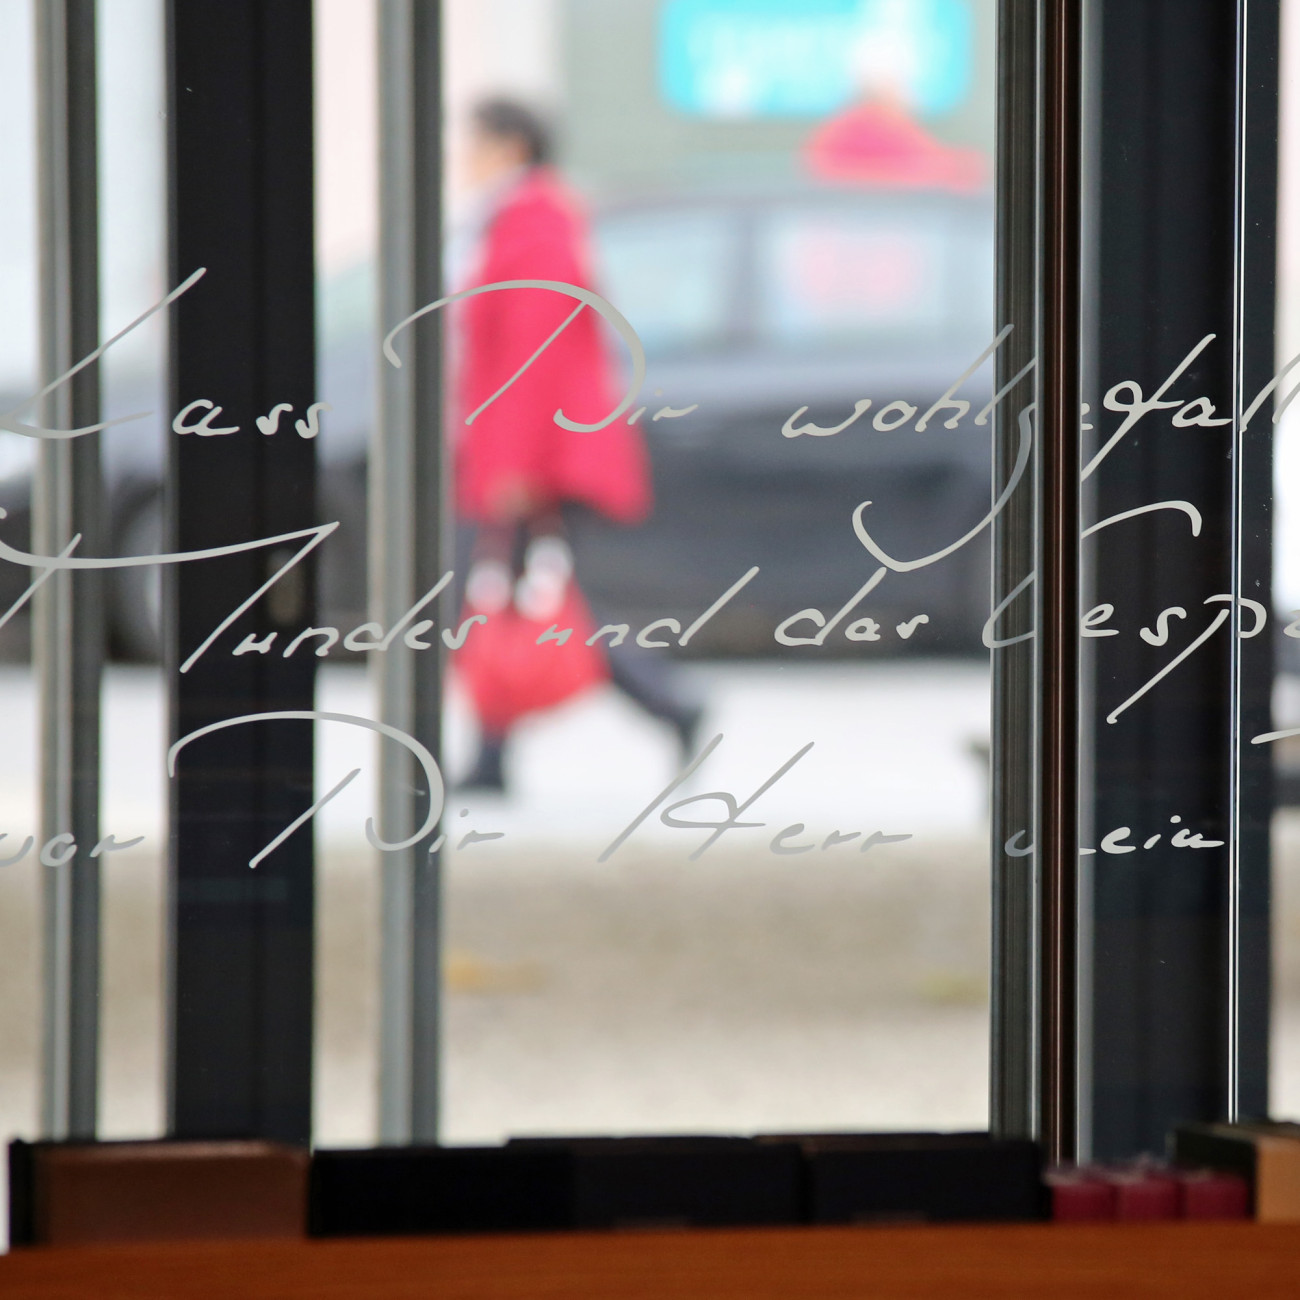 Lass Dir wohlgefall
Mundes und das Gesp
vor Dir Herr mein